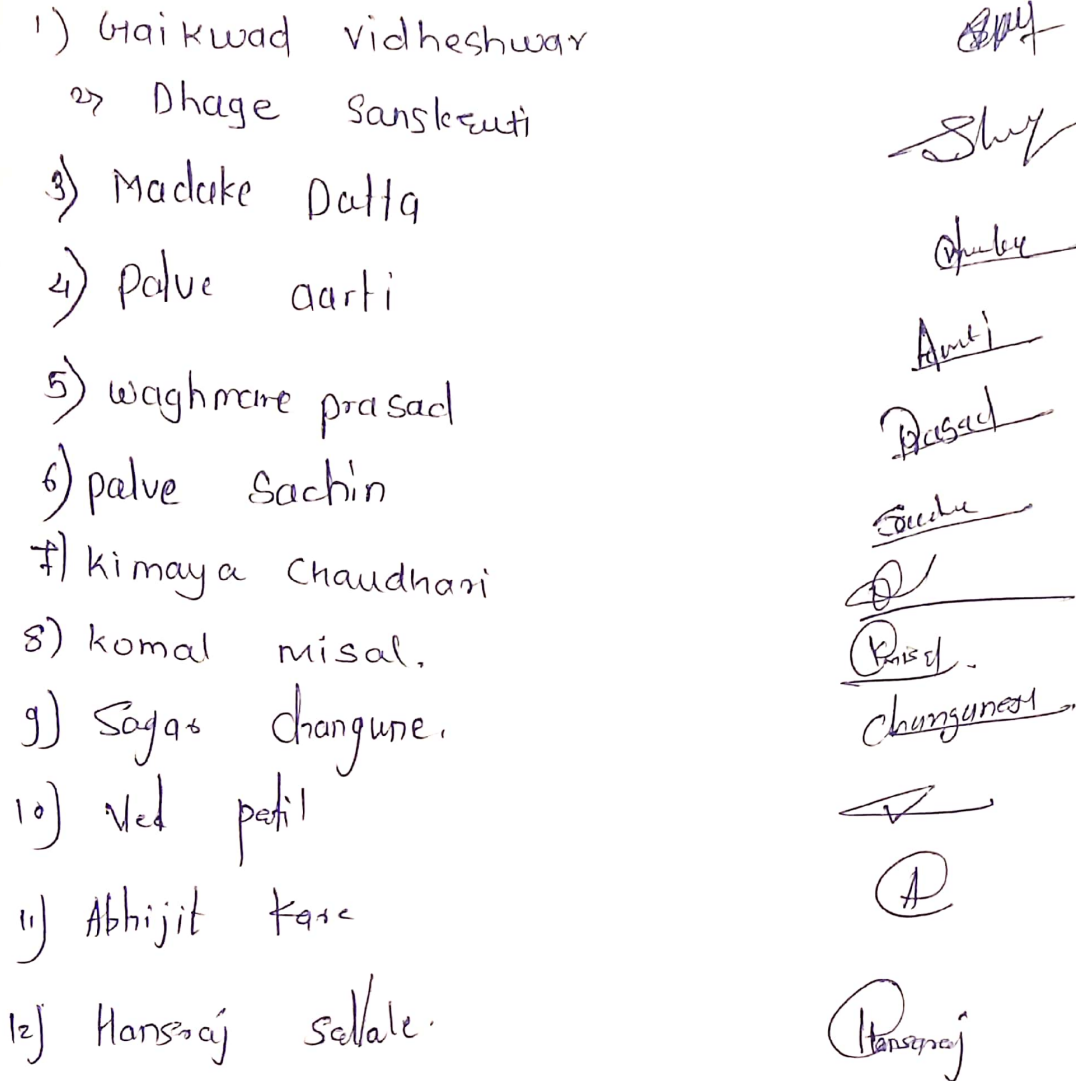 1) Gaikwad Vidheshwar
2) Dhage Sanskruti
3) Madake Datta
4) Palve aarti
5) waghmare prasad Prasad
6) palve Sachin
7) kimaya Chaudhari
8) komal misal.
9) Sagar changune.
10) Ved patil V
11) Abhijit Kare A
12) Hansraj sallale. Hansraj